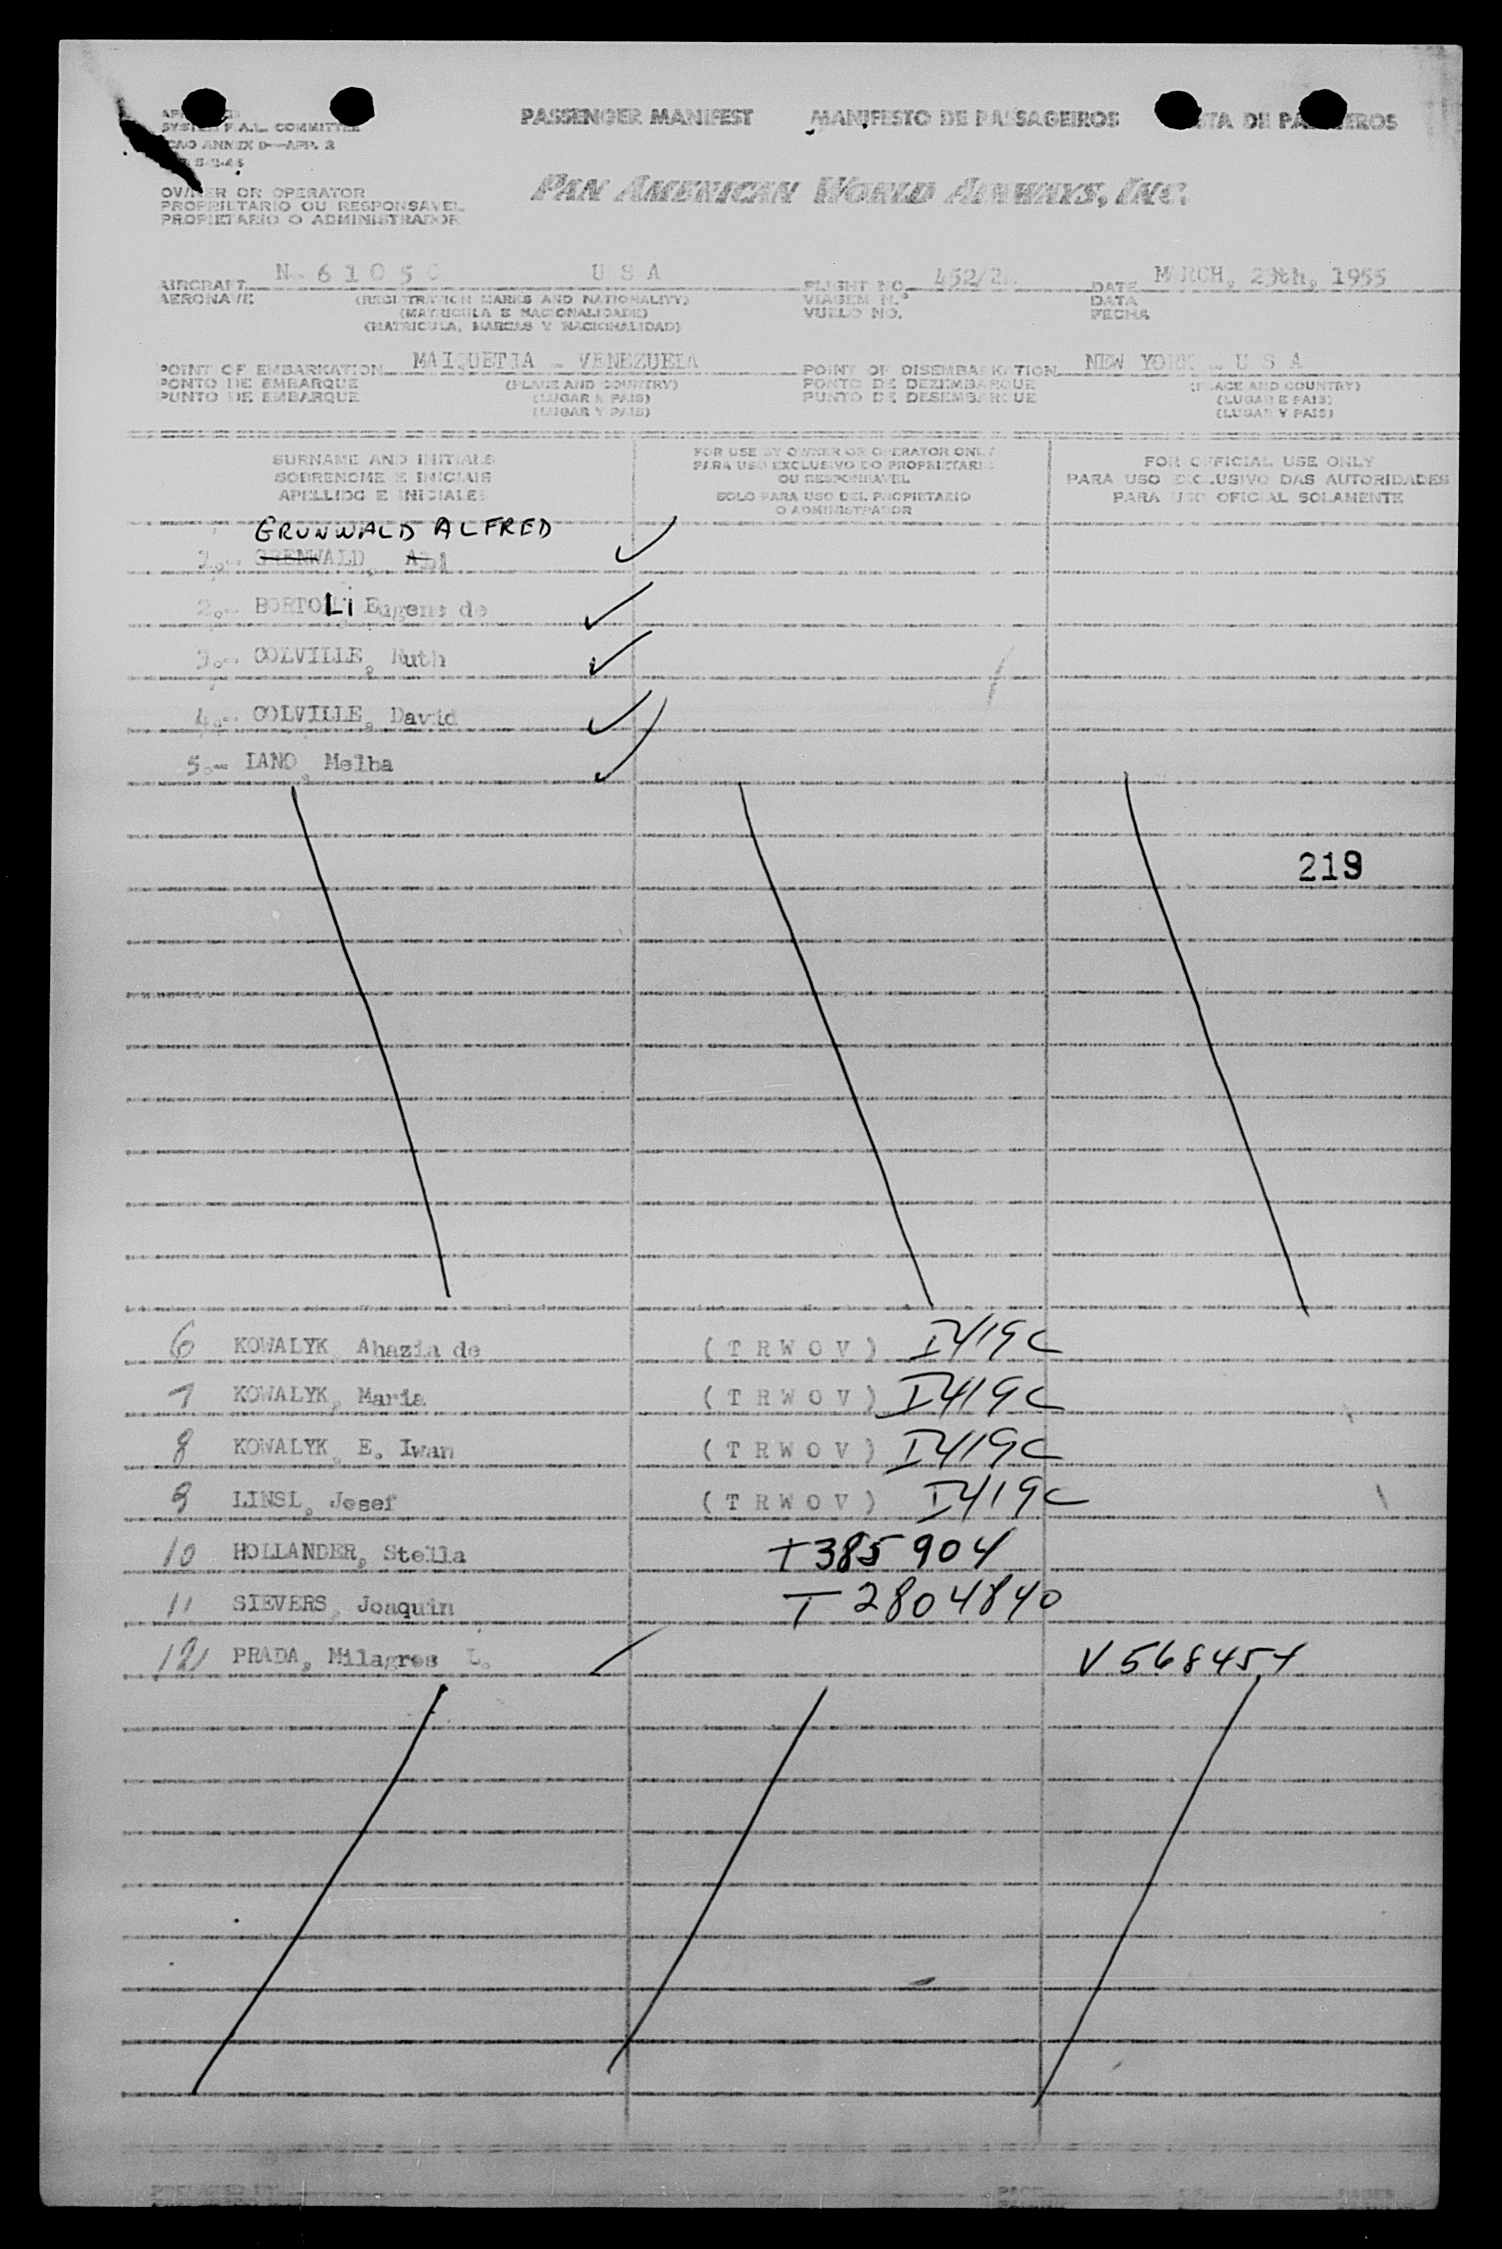 PASSENGER MANIFEST MANIFESTO DE PASSAGEIROS DE
SYSTEM F.A.L. COMMITTEE
ICAO ANNEX 9—APP. 2
OWNER OR OPERATOR
PROPRIETARIO OU RESPONSAVEL
PROPIETARIO O ADMINISTRADOR
PAN AMERICAN WORLD AIRWAYS, INC.
AIRCRAFT U S A FLIGHT NO. DATE MARCH, 29th, 1955
AERONAVE (REGISTRATION MARKS AND NATIONALITY) VIAGEM N.° DATA
(MATRICULA E NACIONALIDADE) VUELO NO. FECHA
(MATRICULA, MARCAS Y NACIONALIDAD)
POINT OF EMBARKATION MAIQUETIA - VENEZUELA POINT OF DISEMBARKATION NEW YORK - U S A
PONTO DE EMBARQUE (PLACE AND COUNTRY) PONTO DE DEZEMBARQUE (PLACE AND COUNTRY)
PUNTO DE EMBARQUE (LUGAR E PAIS) PUNTO DE DESEMBARQUE (LUGAR E PAIS)
(LUGAR Y PAIS) (LUGAR Y PAIS)
SURNAME AND INITIALS FOR USE BY OWNER OR OPERATOR ONLY FOR OFFICIAL USE ONLY
SOBRENOME E INICIAIS PARA USO EXCLUSIVO DO PROPRIETARIO PARA USO EXCLUSIVO DAS AUTORIDADES
APELLIDO E INICIALES OU RESPONSAVEL PARA USO OFICIAL SOLAMENTE
SOLO PARA USO DEL PROPIETARIO
O ADMINISTRADOR
GRUNWALD ALFRED
GRENWALD,
2.- BORTOLI Eugene de
3.- COLVILLE, Ruth
4.- COLVILLE, David
5.- LANO, Melba
219
6 KOWALYK, Ahazia de (T R W O V) I419C
7 KOWALYK, Maria (T R W O V) I419C
8 KOWALYK, E. Iwan (T R W O V) I419C
9 LINSL, Josef (T R W O V) I419C
10 HOLLANDER, Stella T385904
11 SIEVERS, Joaquin T 2804840
12 PRADA, Milagros L. V568454